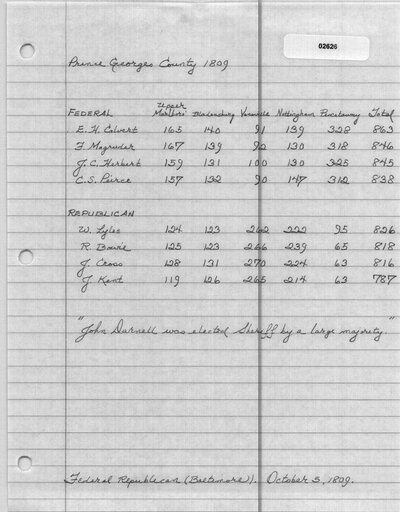 02626
Prince Georges County 1809
Upper
FEDERAL Marlboro' Bladensburg Vansville Nottingham Piscataway Total
E. H. Calvert 165 140 91 139 328 863
F. Magruder 167 139 92 130 318 846
J. C. Herbert 159 131 100 130 325 845
C. S. Peirce 157 132 90 147 312 838
REPUBLICAN
W. Lyles 124 123 262 222 95 826
R. Bowie 125 123 266 239 65 818
J. Cross 128 131 270 224 63 816
J. Kent 119 126 265 214 63 787
"John Darnell was elected Sheriff by a large majority."
Federal Republican (Baltimore). October 5, 1809.